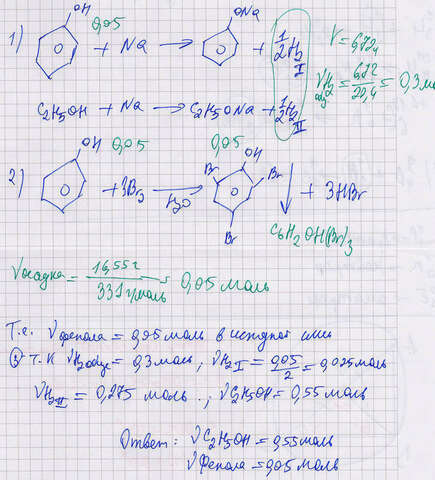 1) OH 0,05 + Na → ONa + 1/2 H2 I V = 6,72л
C2H5OH + Na → C2H5ONa + 1/2 H2 II νH2 общ = 6,72/22,4 = 0,3 мо
2) OH 0,05 + 3Br2 → H2O 0,05 OH Br Br Br ↓ + 3HBr
C6H2OH(Br)3
νосадка = 16,55г / 331г/моль = 0,05 моль
Т.е. νфенола = 0,05 моль в исходной сми
т.к νH2общ = 0,3 моль, νH2 I = 0,05/2 = 0,025моль
νH2 II = 0,275 моль., νC2H5OH = 0,55 моль
Ответ: νC2H5OH = 0,55 моль
νФенола = 0,05 моль